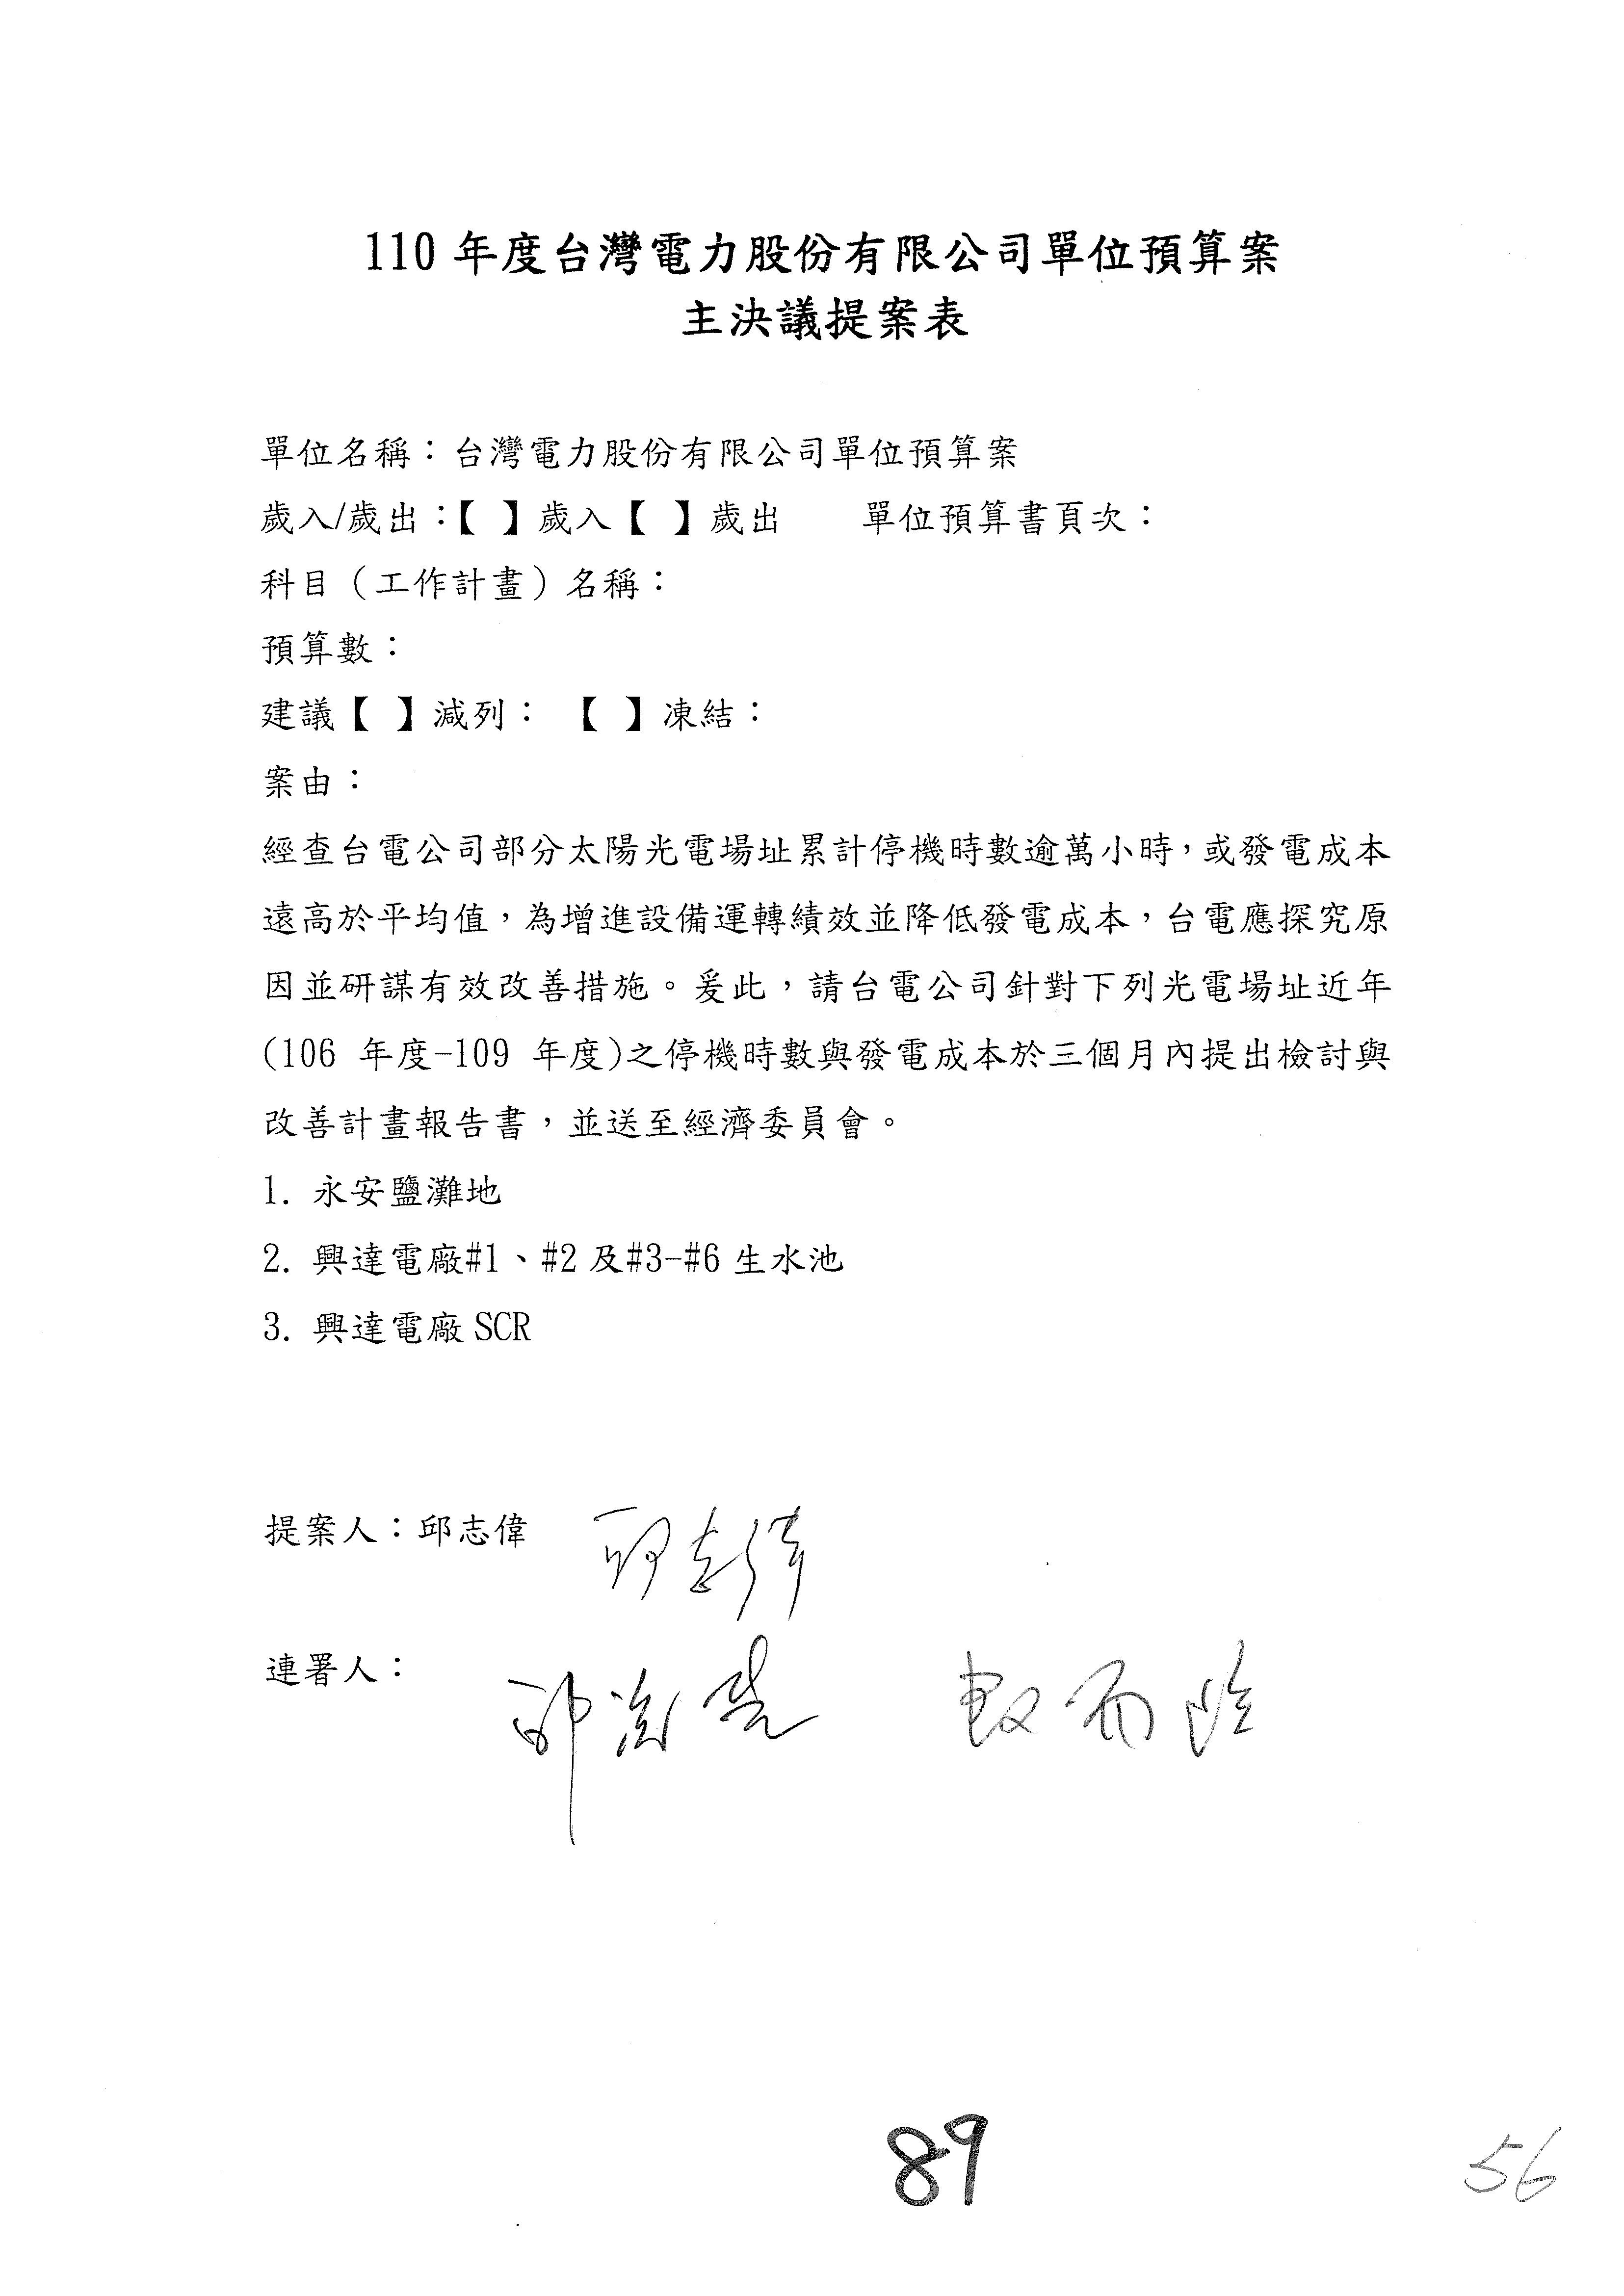 110 年度台灣電力股份有限公司單位預算案
主決議提案表
單位名稱：台灣電力股份有限公司單位預算案
歲入/歲出：【 】歲入【 】歲出 單位預算書頁次：
科目（工作計畫）名稱：
預算數：
建議【 】減列： 【 】凍結：
案由：
經查台電公司部分太陽光電場址累計停機時數逾萬小時，或發電成本
遠高於平均值，為增進設備運轉績效並降低發電成本，台電應探究原
因並研謀有效改善措施。爰此，請台電公司針對下列光電場址近年
(106 年度-109 年度)之停機時數與發電成本於三個月內提出檢討與
改善計畫報告書，並送至經濟委員會。
1. 永安鹽灘地
2. 興達電廠#1、#2 及#3-#6 生水池
3. 興達電廠 SCR
提案人：邱志偉 邱志偉
連署人：
89
56